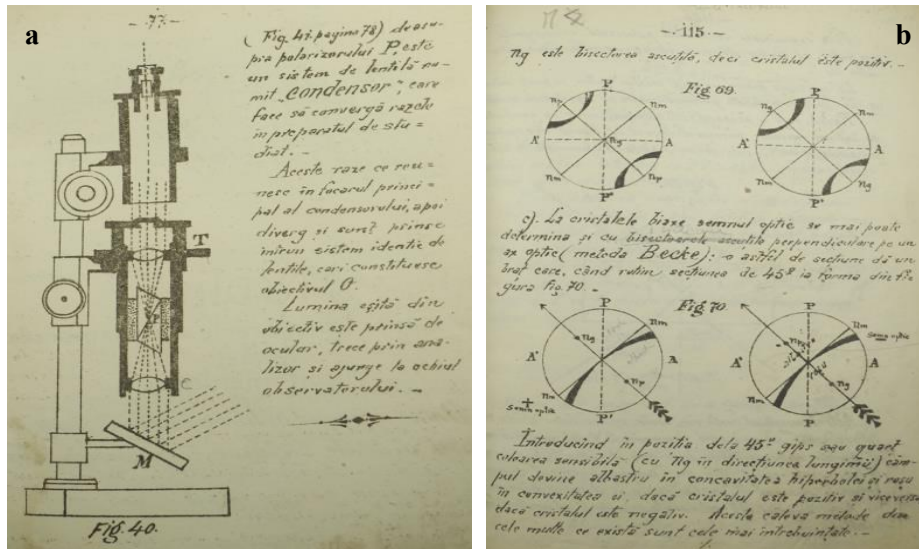 a
- 77. -
(Fig. 41. pagina 78) deasu=
pra polarizorului P, este
un sistem de lentilă nu-
mit „Condensor", care
face să convergă razele
în preparatul de stu=
diat. -
Aceste raze ce reu=
nesc în focarul princi=
pal al condensorului, apoi
diverg și sunt prinse
într'un sistem identic de
lentile, cari constituesc
obiectivul O.
Lumina eșită din
obiectiv este prinsă de
ocular, trece prin ana-
lizor și ajunge la ochiul
observatorului. -
T
P
C
M
Fig. 40.
b
- 115. -
ng este bisectoarea ascuțită, deci cristalul este pozitiv. -
Fig. 69.
P
np
nm
A'
ng
A
nm
np
P'
P
ng
nm
A'
A
nm
ng
P'
c). La cristalele biaxe semnul optic se mai poate
determina și cu bisectoarele ascuțite perpendiculare pe un
ax optic (metoda Becke): o astfel de secțiune dă un
braț care, când rotim secțiunea de 45° ia forma din fi=
gura fig. 70. -
Fig. 70.
P
nm
ng
A'
A
np
nm
P'
+
semn optic
P
nm
semn optic
A'
A
ng
nm
P'
Introducind în poziția dela 45° gips sau quarț
coloarea sensibilă (cu ng în direcțiunea lungimii) câm-
pul devine albastru în concavitatea hiperbolei și roșu
în convexitatea ei, dacă cristalul este pozitiv și viceversa
dacă cristalul este negativ. Aceste câteva metode din
cele multe ce există sunt cele mai întrebuințate. -